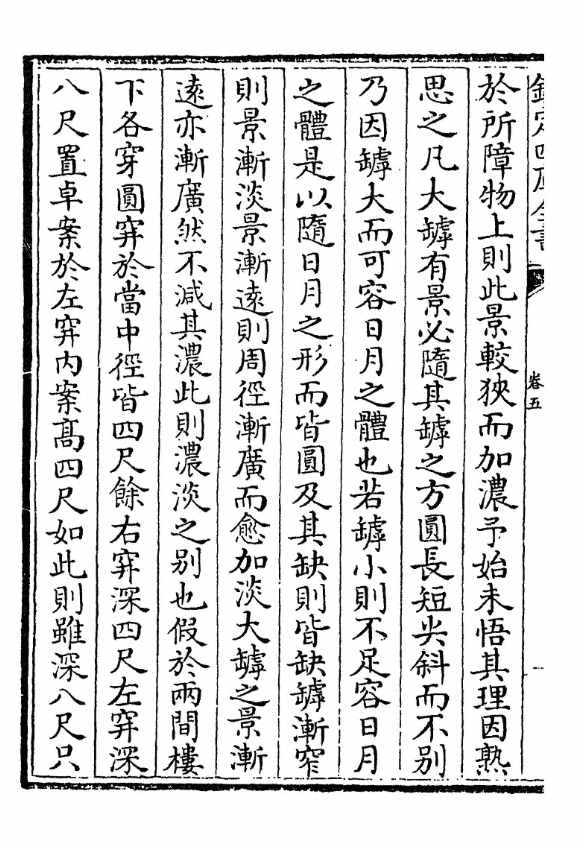 欽定四庫全書
卷五
於所障物上則此景較狹而加濃予始未悟其理因熟
思之凡大罅有景必隨其罅之方圓長短尖斜而不別
乃因罅大而可容日月之體也若罅小則不足容日月
之體是以隨日月之形而皆圓及其缺則皆缺罅漸窄
則景漸淡景漸遠則周徑漸廣而愈加淡大罅之景漸
遠亦漸廣然不減其濃此則濃淡之别也假於兩間樓
下各穿圓穽於當中徑皆四尺餘右穽深四尺左穽深
八尺置卓案於左穽内案髙四尺如此則雖深八尺只